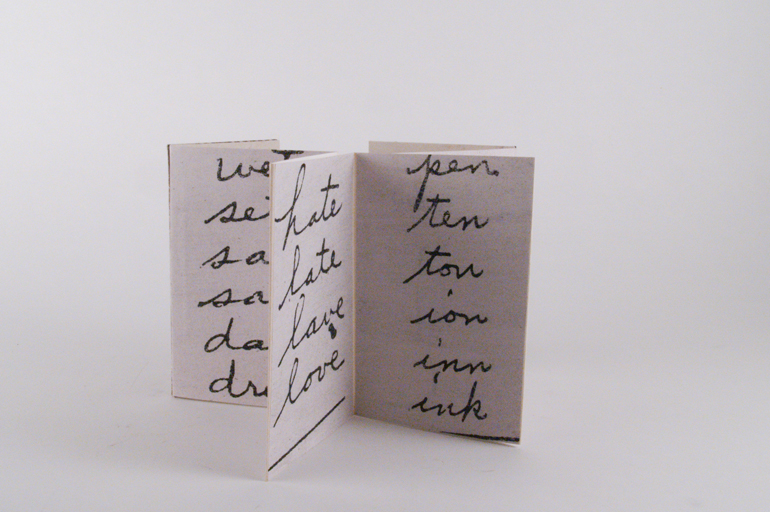 we
se
sa
sa
da
dr
hate
late
lave
love
pen
ten
ton
ion
inn
ink